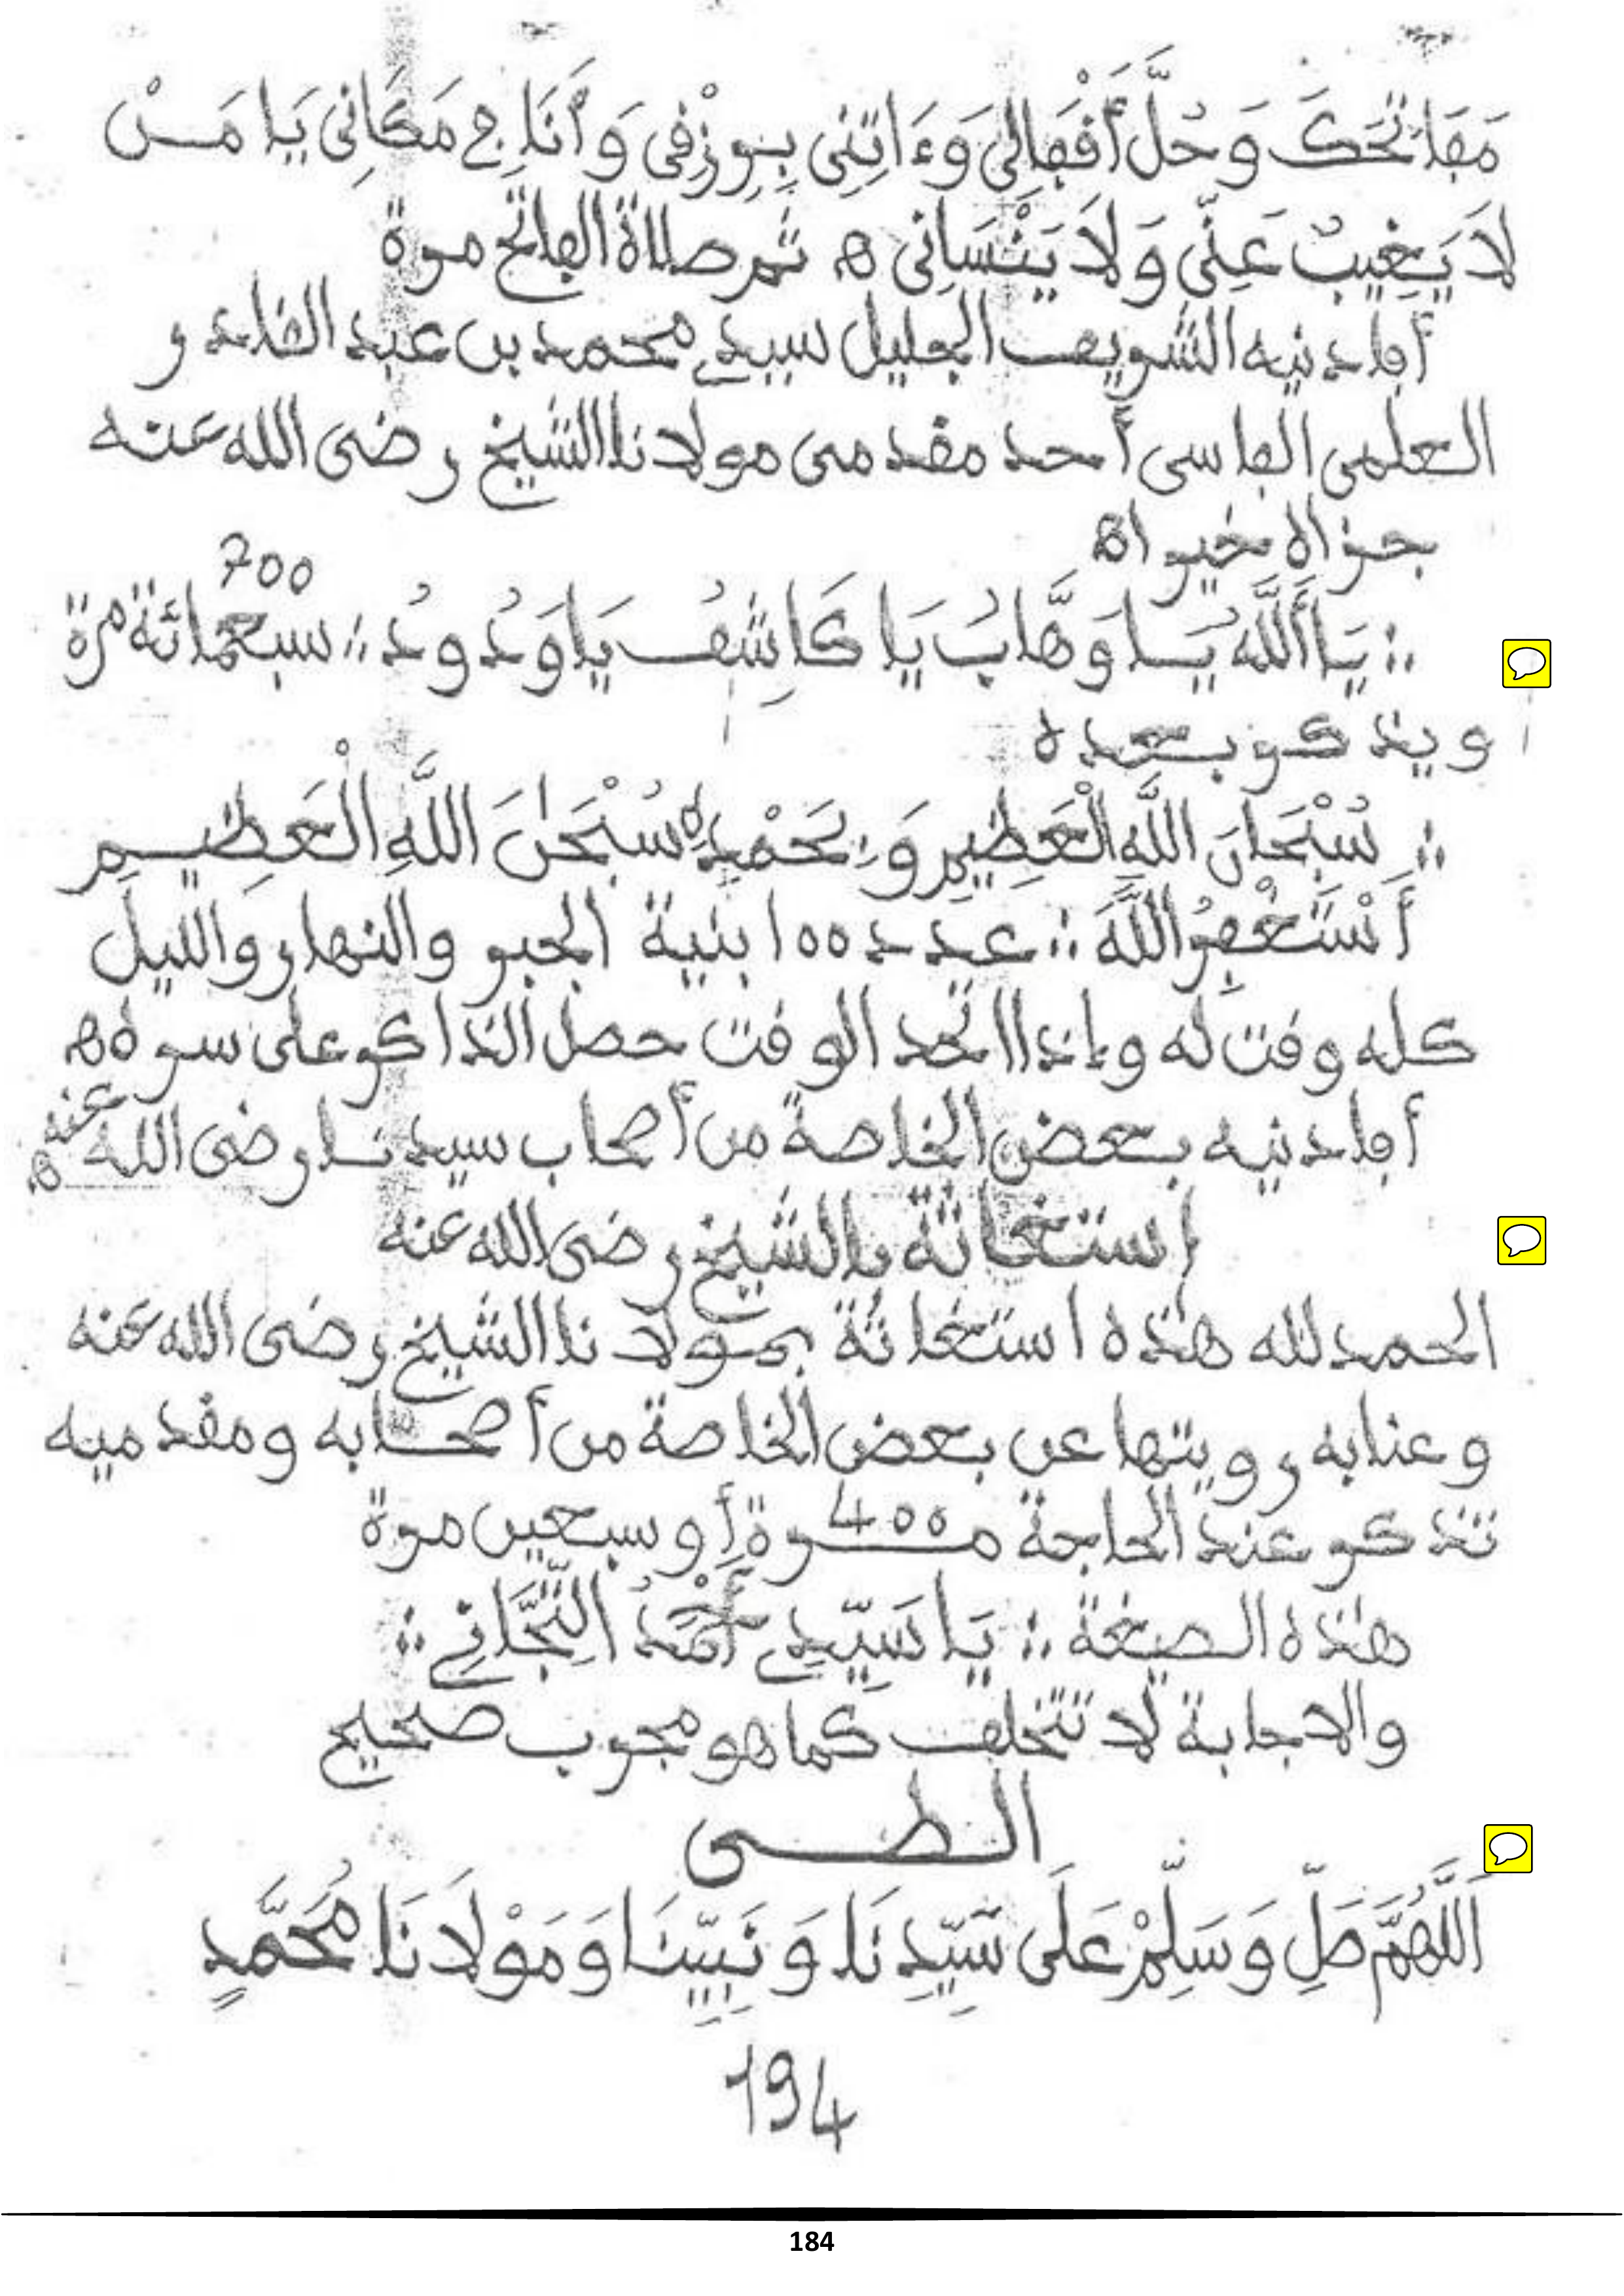 مَفَاتِحَكَ وَحُلَّ أَقْفَالِي وَءَاتِنِى بِرِزْقِى وَأَنَا فِى مَكَانِى يَا مَنْ
لَا يَغِيبُ عَنِّى وَلَا يَنْسَانِى ه ثم صلاة الفاتح مرة
أفادنيه الشريف الجليل سيدي محمد بن عبد القادر
العلمى الفاسى أحد مقدمى مولانا الشيخ رضى الله عنه
جزاه خيرا ه
700
؞ يَا أَللَّهُ يَا وَهَّابُ يَا كَاشِفُ يَا وَدُودُ ؞ سبعمائة مرة
ويذكر بعده
؞ سُبْحَانَ اللَّهِ الْعَظِيمِ وَبِحَمْدِهِ سُبْحَٰنَ اللَّهِ الْعَظِيمِ
أَسْتَغْفِرُ اللَّهَ ؞ عدد 100 بنية الجبر والنهار والليل
كله وقت له وإذا اتحد الوقت حصل الذاكر على سره ه
أفادنيه بعض الخاصة من أصحاب سيدنا رضى الله عنه ه
استغاثة بالشيخ رضى الله عنه
الحمد لله هذه استغاثة بمولانا الشيخ رضى الله عنه
وعنا به رويتها عن بعض الخاصة من أصحابه ومقدميه
تذكر عند الحاجة 400 مرة أو سبعين مرة
هذه الصيغة ؞ يَا سَيِّدِي أَحْمَدُ التِّجَّانِي ؞
والاجابة لا تتخلف كما هو مجرب صحيح
الطى
اَللَّهُمَّ صَلِّ وَسَلِّمْ عَلَى سَيِّدِنَا وَنَبِيِّنَا وَمَوْلَانَا مُحَمَّدٍ
194
184